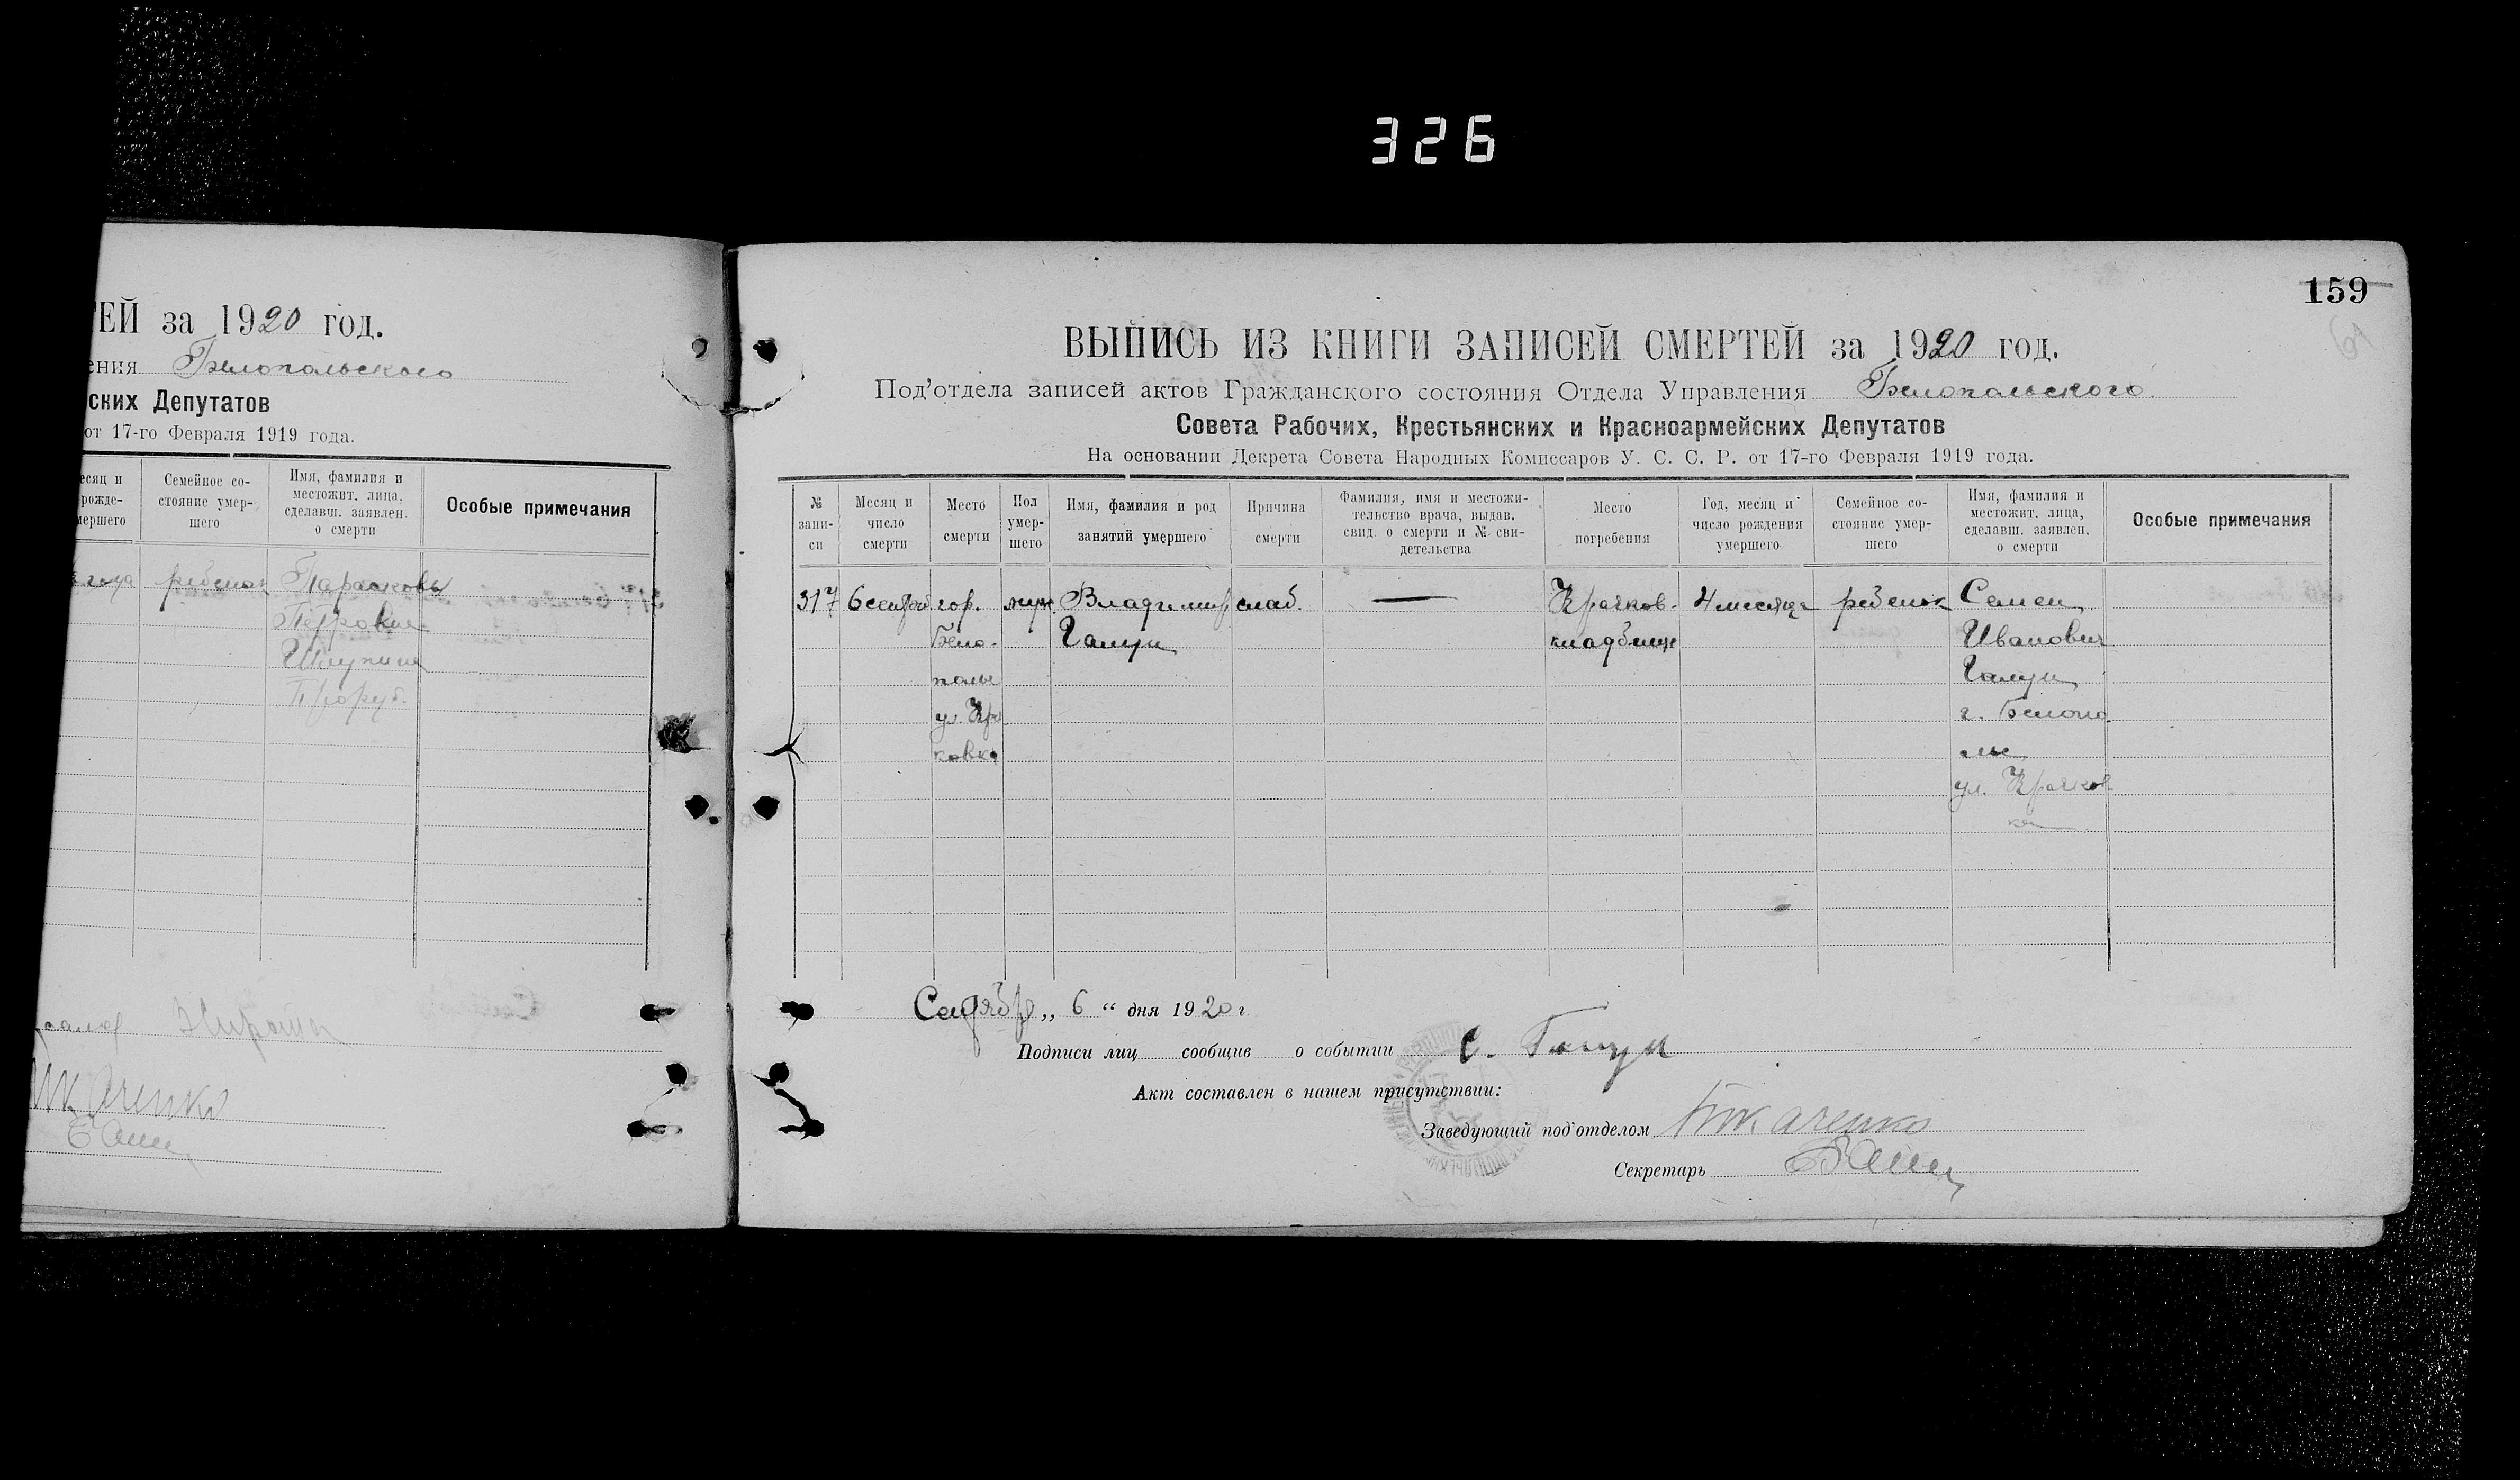 326
ТЕЙ за 1920 год.
ения Белопольского
ских Депутатов
от 17-го Февраля 1919 года.
есяц и
рожде-
мершего
Семейное со-
стояние умер-
шего
Имя, фамилия и
местожит. лица,
сделавш. заявлен.
о смерти
Особые примечания
года
ребенок
Парасковья
Петровна
159
ВЫПИСЬ ИЗ КНИГИ ЗАПИСЕЙ СМЕРТЕЙ за 1920 год.
Под'отдела записей актов Гражданского состояния Отдела Управления Белопольского
Совета Рабочих, Крестьянских и Красноармейских Депутатов
На основании Декрета Совета Народных Комиссаров У. С. С. Р. от 17-го Февраля 1919 года.
№
запи-
си
Месяц и
число
смерти
Место
смерти
Пол
умер-
шего
Имя, фамилия и род
занятий умершего
Причина
смерти
Фамилия, имя и местожи-
тельство врача, выдав.
свид. о смерти и № сви-
детельства
Место
погребения
Год, месяц и
число рождения
умершего
Семейное со-
стояние умер-
шего
Имя, фамилия и
местожит. лица,
сделавш. заявлен.
о смерти
Особые примечания
317
6 сентяб
гор.
Бело-
полье
ул. Кра
ковка
муж.
Владимир
Галун
слаб.
—
Крачков-
кладбище
4 месяца
ребенок
Семен
Иванович
Галун
г. Белопо
лье
ул. Крачков
ка
Сентябр „ 6 “ дня 1920 г
Подписи лиц сообщив о событии С. Галун
Акт составлен в нашем присутствии:
Заведующий под'отделом
Секретарь